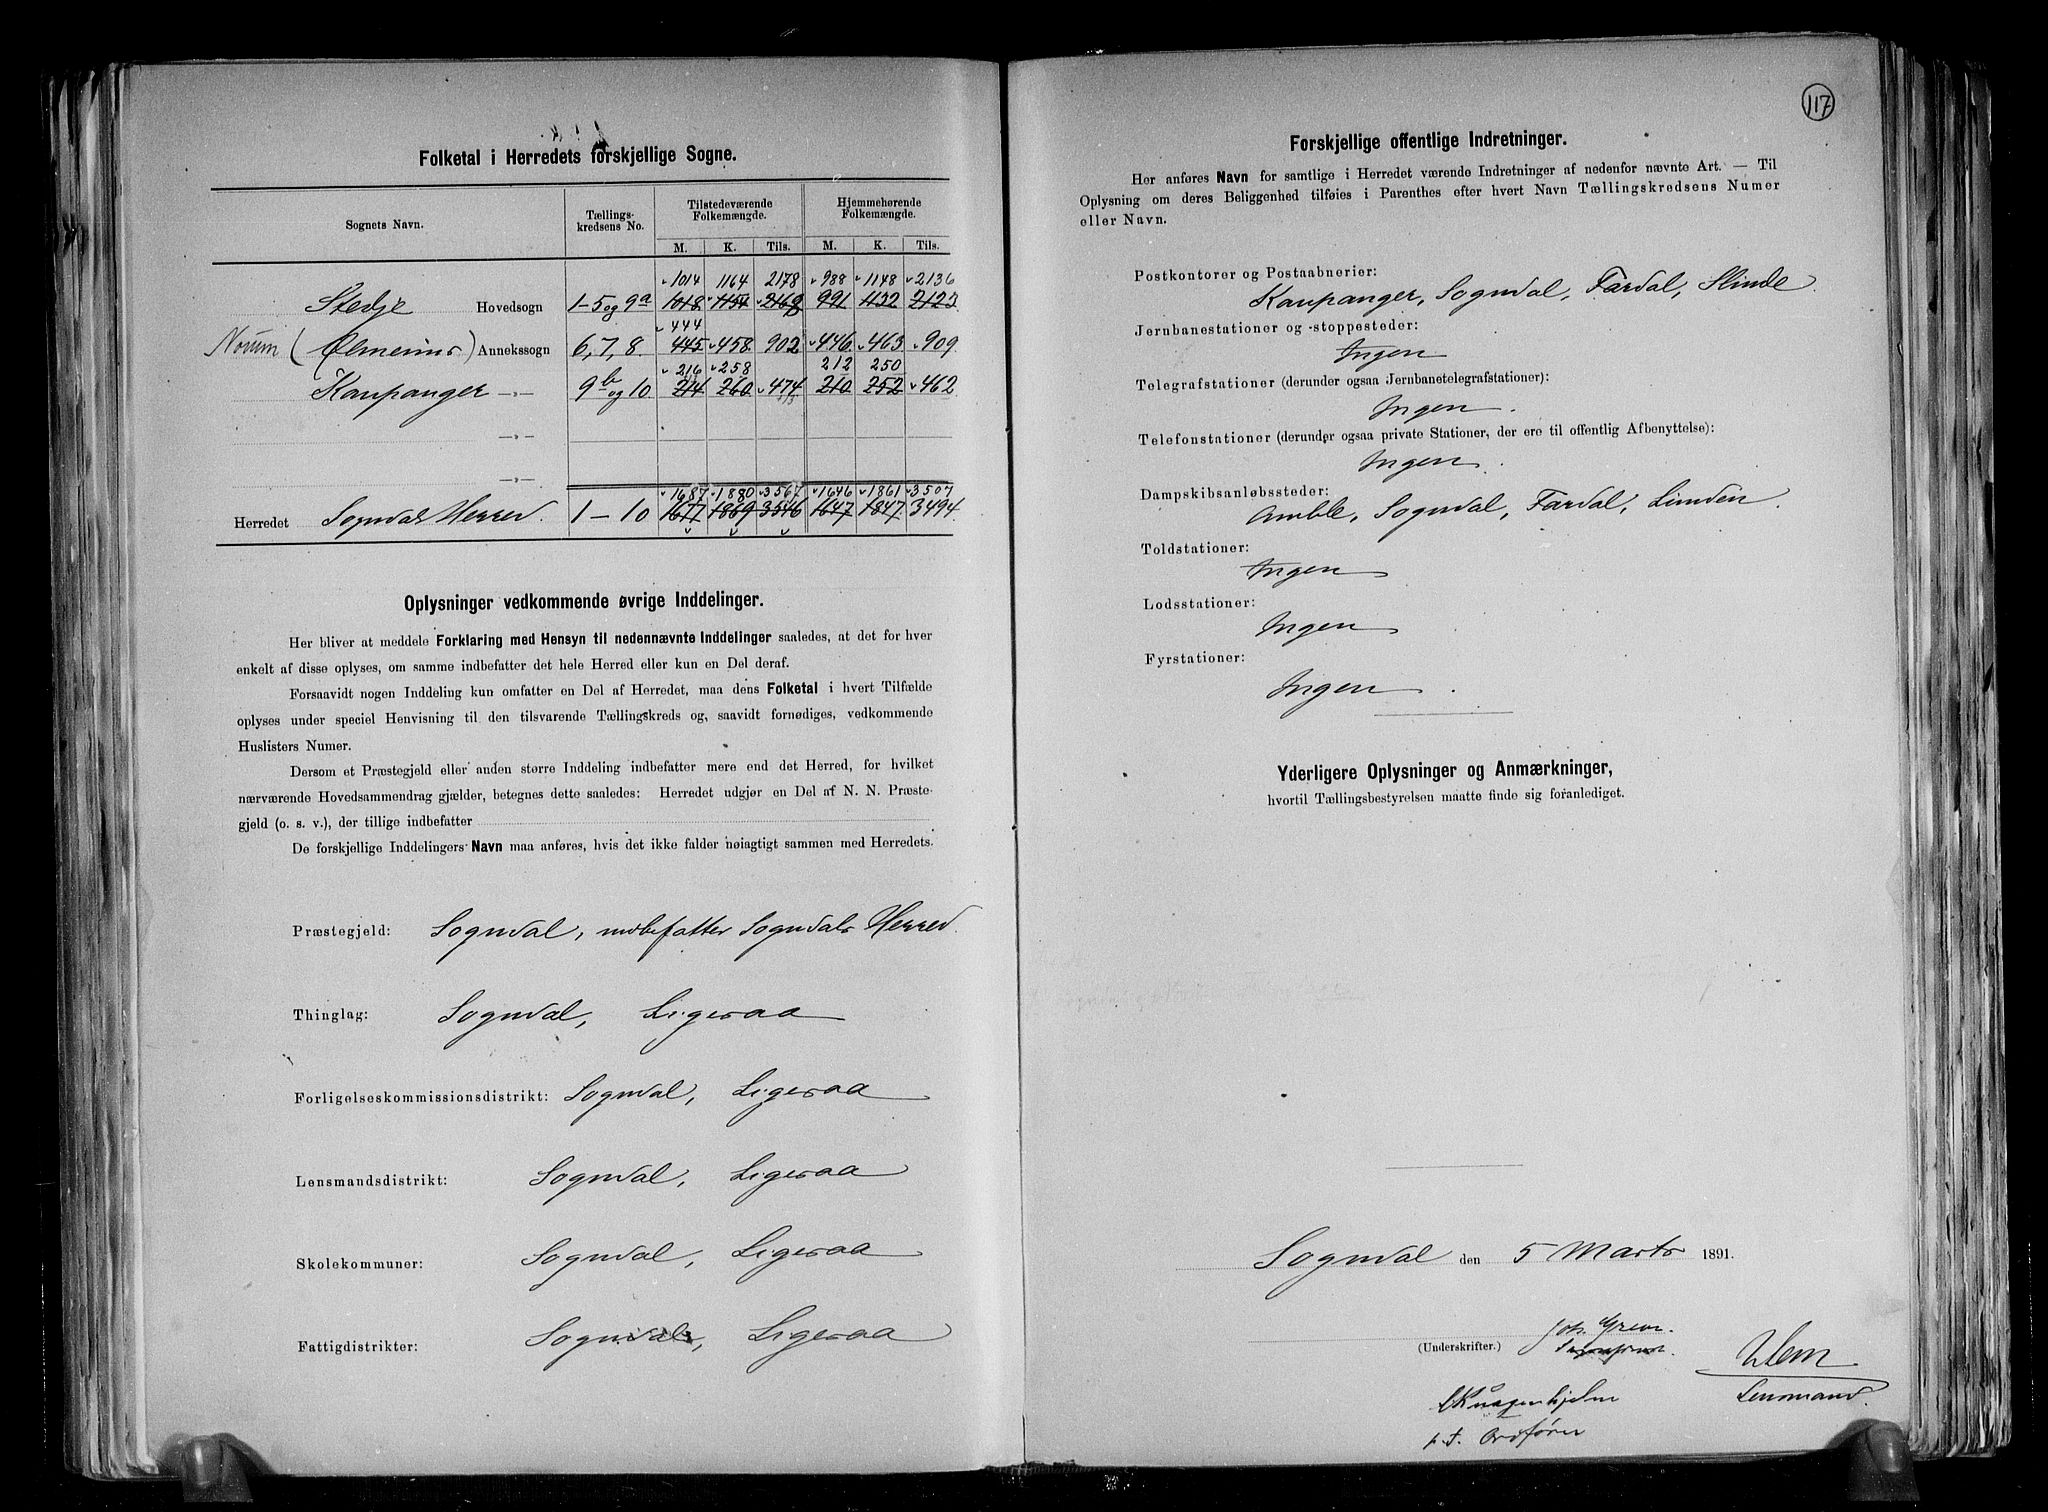 Folketal i Herredets forskjellige Sogne.
Sognets Navn. Tællings-kredsens No. Tilstedeværende Folkemængde. Hjemmehørende Folkemængde.
M. K. Tils. M. K. Tils.
1014 1164 2178 988 1148 2136
Stedje Hovedsogn 1-5 og 9a 1018 1151 2169 991 1132 2123
444
Norum (Olmeims) Annekssogn 6, 7, 8. 445 458 902 446 463 909
216 258 212 250
Kaupanger -„- 9b og 10 214 260 474 210 252 462
-„-
-„-
1687 1880 3567 1646 1861 3507
Herredet Sogndals Herred. 1-10 1677 1869 3546 1647 1847 3494
Oplysninger vedkommende øvrige Inddelinger.
Her bliver at meddele Forklaring med Hensyn til nedennævnte Inddelinger saaledes, at det for hver
enkelt af disse oplyses, om samme indbefatter det hele Herred eller kun en Del deraf.
Forsaavidt nogen Inddeling kun omfatter en Del af Herredet, maa dens Folketal i hvert Tilfælde
oplyses under speciel Henvisning til den tilsvarende Tællingskreds og, saavidt fornødiges, vedkommende
Huslisters Numer.
Dersom et Præstegjeld eller anden større Inddeling indbefatter mere end det Herred, for hvilket
nærværende Hovedsammendrag gjælder, betegnes dette saaledes: Herredet udgjør en Del af N. N. Præste-
gjeld (o. s. v.), der tillige indbefatter
De forskjellige Inddelingers Navn maa anføres, hvis det ikke falder nøiagtigt sammen med Herredets.
Præstegjeld: Sogndal, indbefatter Sogndals Herred.
Thinglag: Sogndal, Ligesaa
Forligelseskommissionsdistrikt: Sogndal, Ligesaa
Lensmandsdistrikt: Sogndal, Ligesaa
Skolekommuner: Sogndal, Ligesaa
Fattigdistrikter: Sogndal, Ligesaa
117
Forskjellige offentlige Indretninger.
Her anføres Navn for samtlige i Herredet værende Indretninger af nedenfor nævnte Art. — Til
Oplysning om deres Beliggenhed tilføies i Parenthes efter hvert Navn Tællingskredsens Numer
eller Navn.
Postkontorer og Postaabnerier:
Kaupanger, Sogndal, Fardal, Slinde.
Jernbanestationer og -stoppesteder:
Ingen
Telegrafstationer (derunder ogsaa Jernbanetelegrafstationer):
Ingen.
Telefonstationer (derunder ogsaa private Stationer, der ere til offentlig Afbenyttelse):
Ingen.
Dampskibsanløbssteder:
Amble, Sogndal, Fardal, Linden.
Toldstationer:
Ingen
Lodsstationer:
Ingen
Fyrstationer:
Ingen.
Yderligere Oplysninger og Anmærkninger,
hvortil Tællingsbestyrelsen maatte finde sig foranlediget.
Sogndal den 5 Marts 1891.
(Underskrifter.) Joh. Greve.
Sogneprest.
Lensmand.
p. t. Ordfører